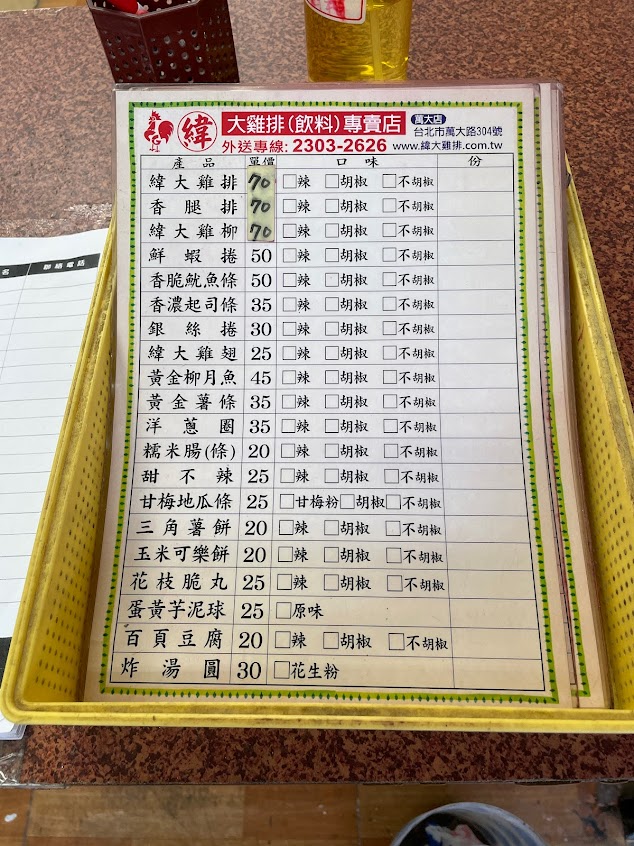 緯 大雞排(飲料)專賣店 萬大店
台北市萬大路304號
外送專線: 2303-2626 www.緯大雞排.com.tw
產品 單價 口味 份
緯大雞排 70 □辣 □胡椒 □不胡椒
香腿排 70 □辣 □胡椒 □不胡椒
緯大雞柳 70 □辣 □胡椒 □不胡椒
鮮蝦捲 50 □辣 □胡椒 □不胡椒
香脆魷魚條 50 □辣 □胡椒 □不胡椒
香濃起司條 35 □辣 □胡椒 □不胡椒
銀絲捲 30 □辣 □胡椒 □不胡椒
緯大雞翅 25 □辣 □胡椒 □不胡椒
黃金柳月魚 45 □辣 □胡椒 □不胡椒
黃金薯條 35 □辣 □胡椒 □不胡椒
洋蔥圈 35 □辣 □胡椒 □不胡椒
糯米腸(條) 20 □辣 □胡椒 □不胡椒
甜不辣 25 □辣 □胡椒 □不胡椒
甘梅地瓜條 25 □甘梅粉 □胡椒 □不胡椒
三角薯餅 20 □辣 □胡椒 □不胡椒
玉米可樂餅 20 □辣 □胡椒 □不胡椒
花枝脆丸 25 □辣 □胡椒 □不胡椒
蛋黃芋泥球 25 □原味
百頁豆腐 20 □辣 □胡椒 □不胡椒
炸湯圓 30 □花生粉
名 聯絡電話